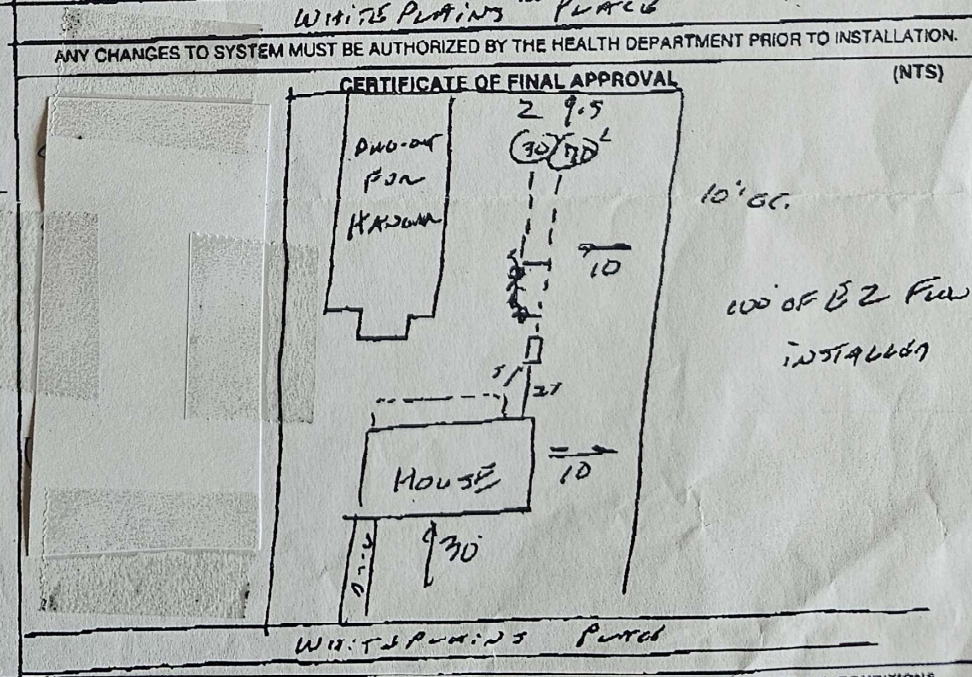 WHITE PLAINS PLACE
ANY CHANGES TO SYSTEM MUST BE AUTHORIZED BY THE HEALTH DEPARTMENT PRIOR TO INSTALLATION.
CERTIFICATE OF FINAL APPROVAL
(NTS)
2 9.5
30
FOR
10' OC.
10
OF EZ Flow
INSTALLED
HOUSE
10
30'
WHITE PLAINS PLACE